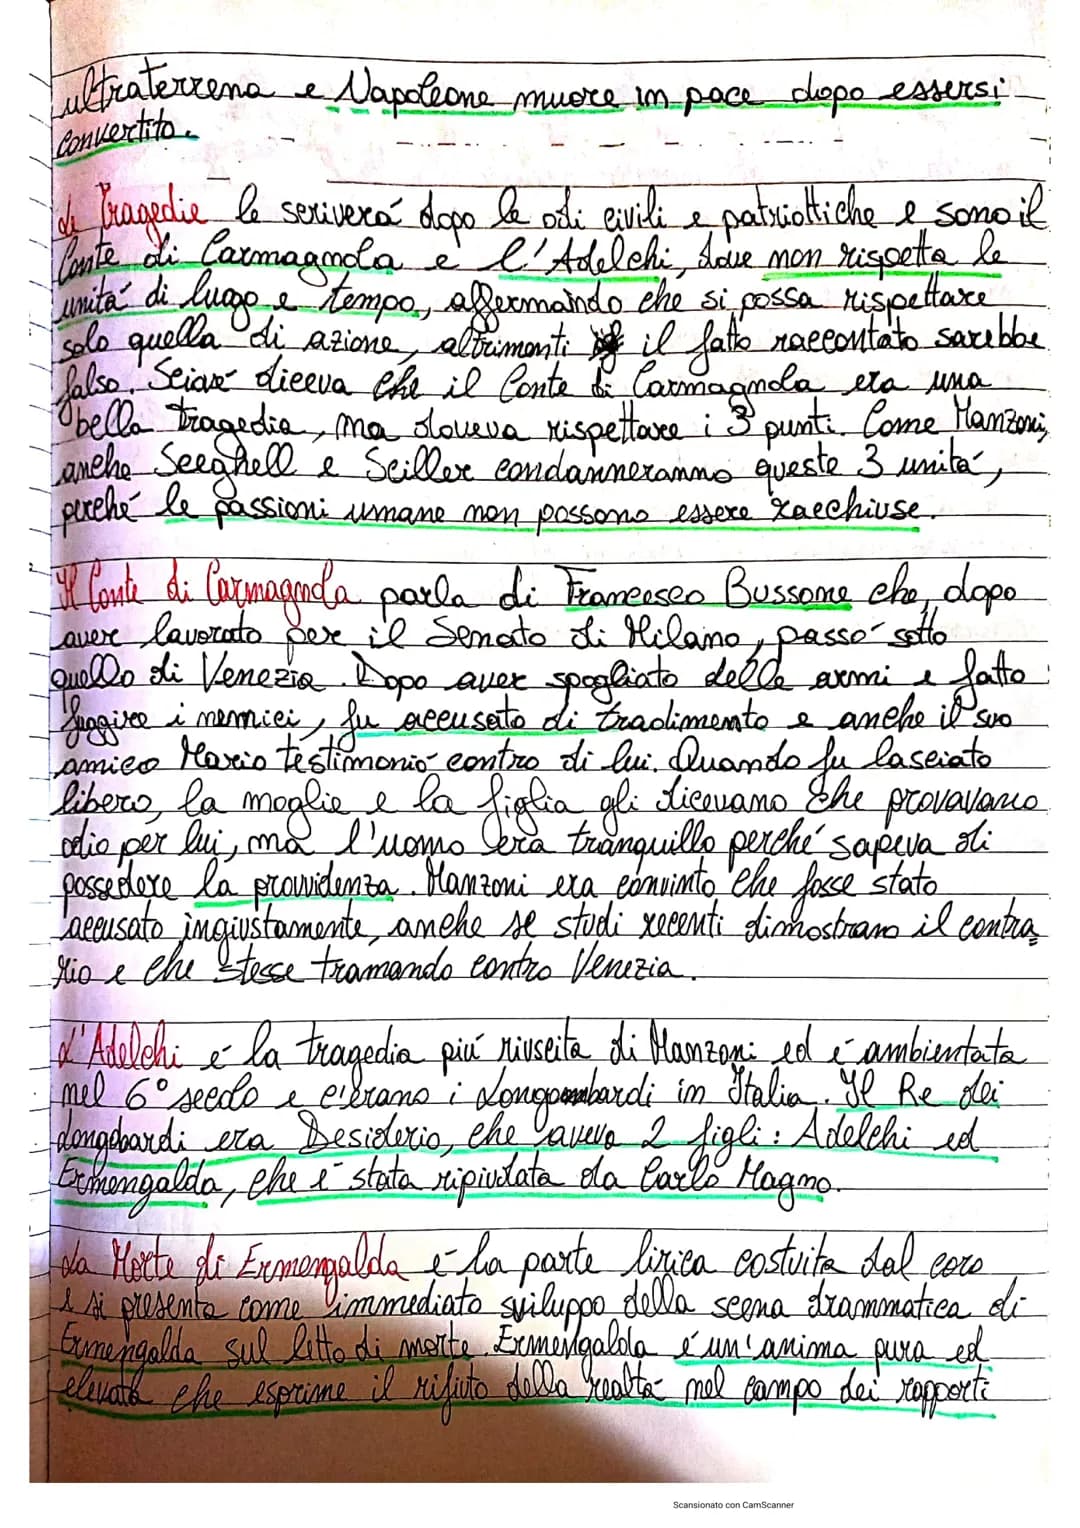 ultraterrena e Napoleone muore in pace dopo essersi
convertito.
Le Tragedie le scriverá dopo le odi civili e patriottiche e sono il
Conte di Carmagnola e l'Adelchi, dove non rispetta le
unitá di luogo e tempo, affermando che si possa rispettare
solo quella di azione, altrimenti il fatto raccontato sarebbe
falso. Sciavé diceva che il Conte di Carmagnola era una
bella tragedia, ma doveva rispettare i 3 punti. Come Manzoni,
anche Sceghell e Sciller condanneranno queste 3 unitá,
perché le passioni umane non possono essere racchiuse.
Il Conte di Carmagnola parla di Francesco Bussone che, dopo
avere lavorato per il Senato di Milano, passó sotto
quello di Venezia. Dopo aver spogliato delle armi e fatto
fuggire i nemici, fu accusato di tradimento e anche il suo
amico Mario testimonió contro di lui. Quando fu lasciato
libero, la moglie e la figlia gli dicevano che provavano
odio per lui, ma l'uomo era tranquillo perché sapeva di
possedere la provvidenza. Manzoni era convinto che fosse stato
accusato ingiustamente, anche se studi recenti dimostrano il contra
rio e che stesse tramando contro Venezia.
L'Adelchi é la tragedia piú riuscita di Manzoni ed é ambientata
nel 6° secolo e c'erano i Longombardi in Italia. Il Re dei
Longobardi era Desiderio, che aveva 2 figli: Adelchi ed
Ermengalda, che é stata ripiudata da Carlo Magno.
La Morte di Ermengalda é la parte lirica costuita dal coro
e si presenta come immediato sviluppo della scena drammatica di
Ermengalda sul letto di morte. Ermengalda é un'anima pura ed
elevata che esprime il rifiuto della realtá nel campo dei rapporti
Scansionato con CamScanner